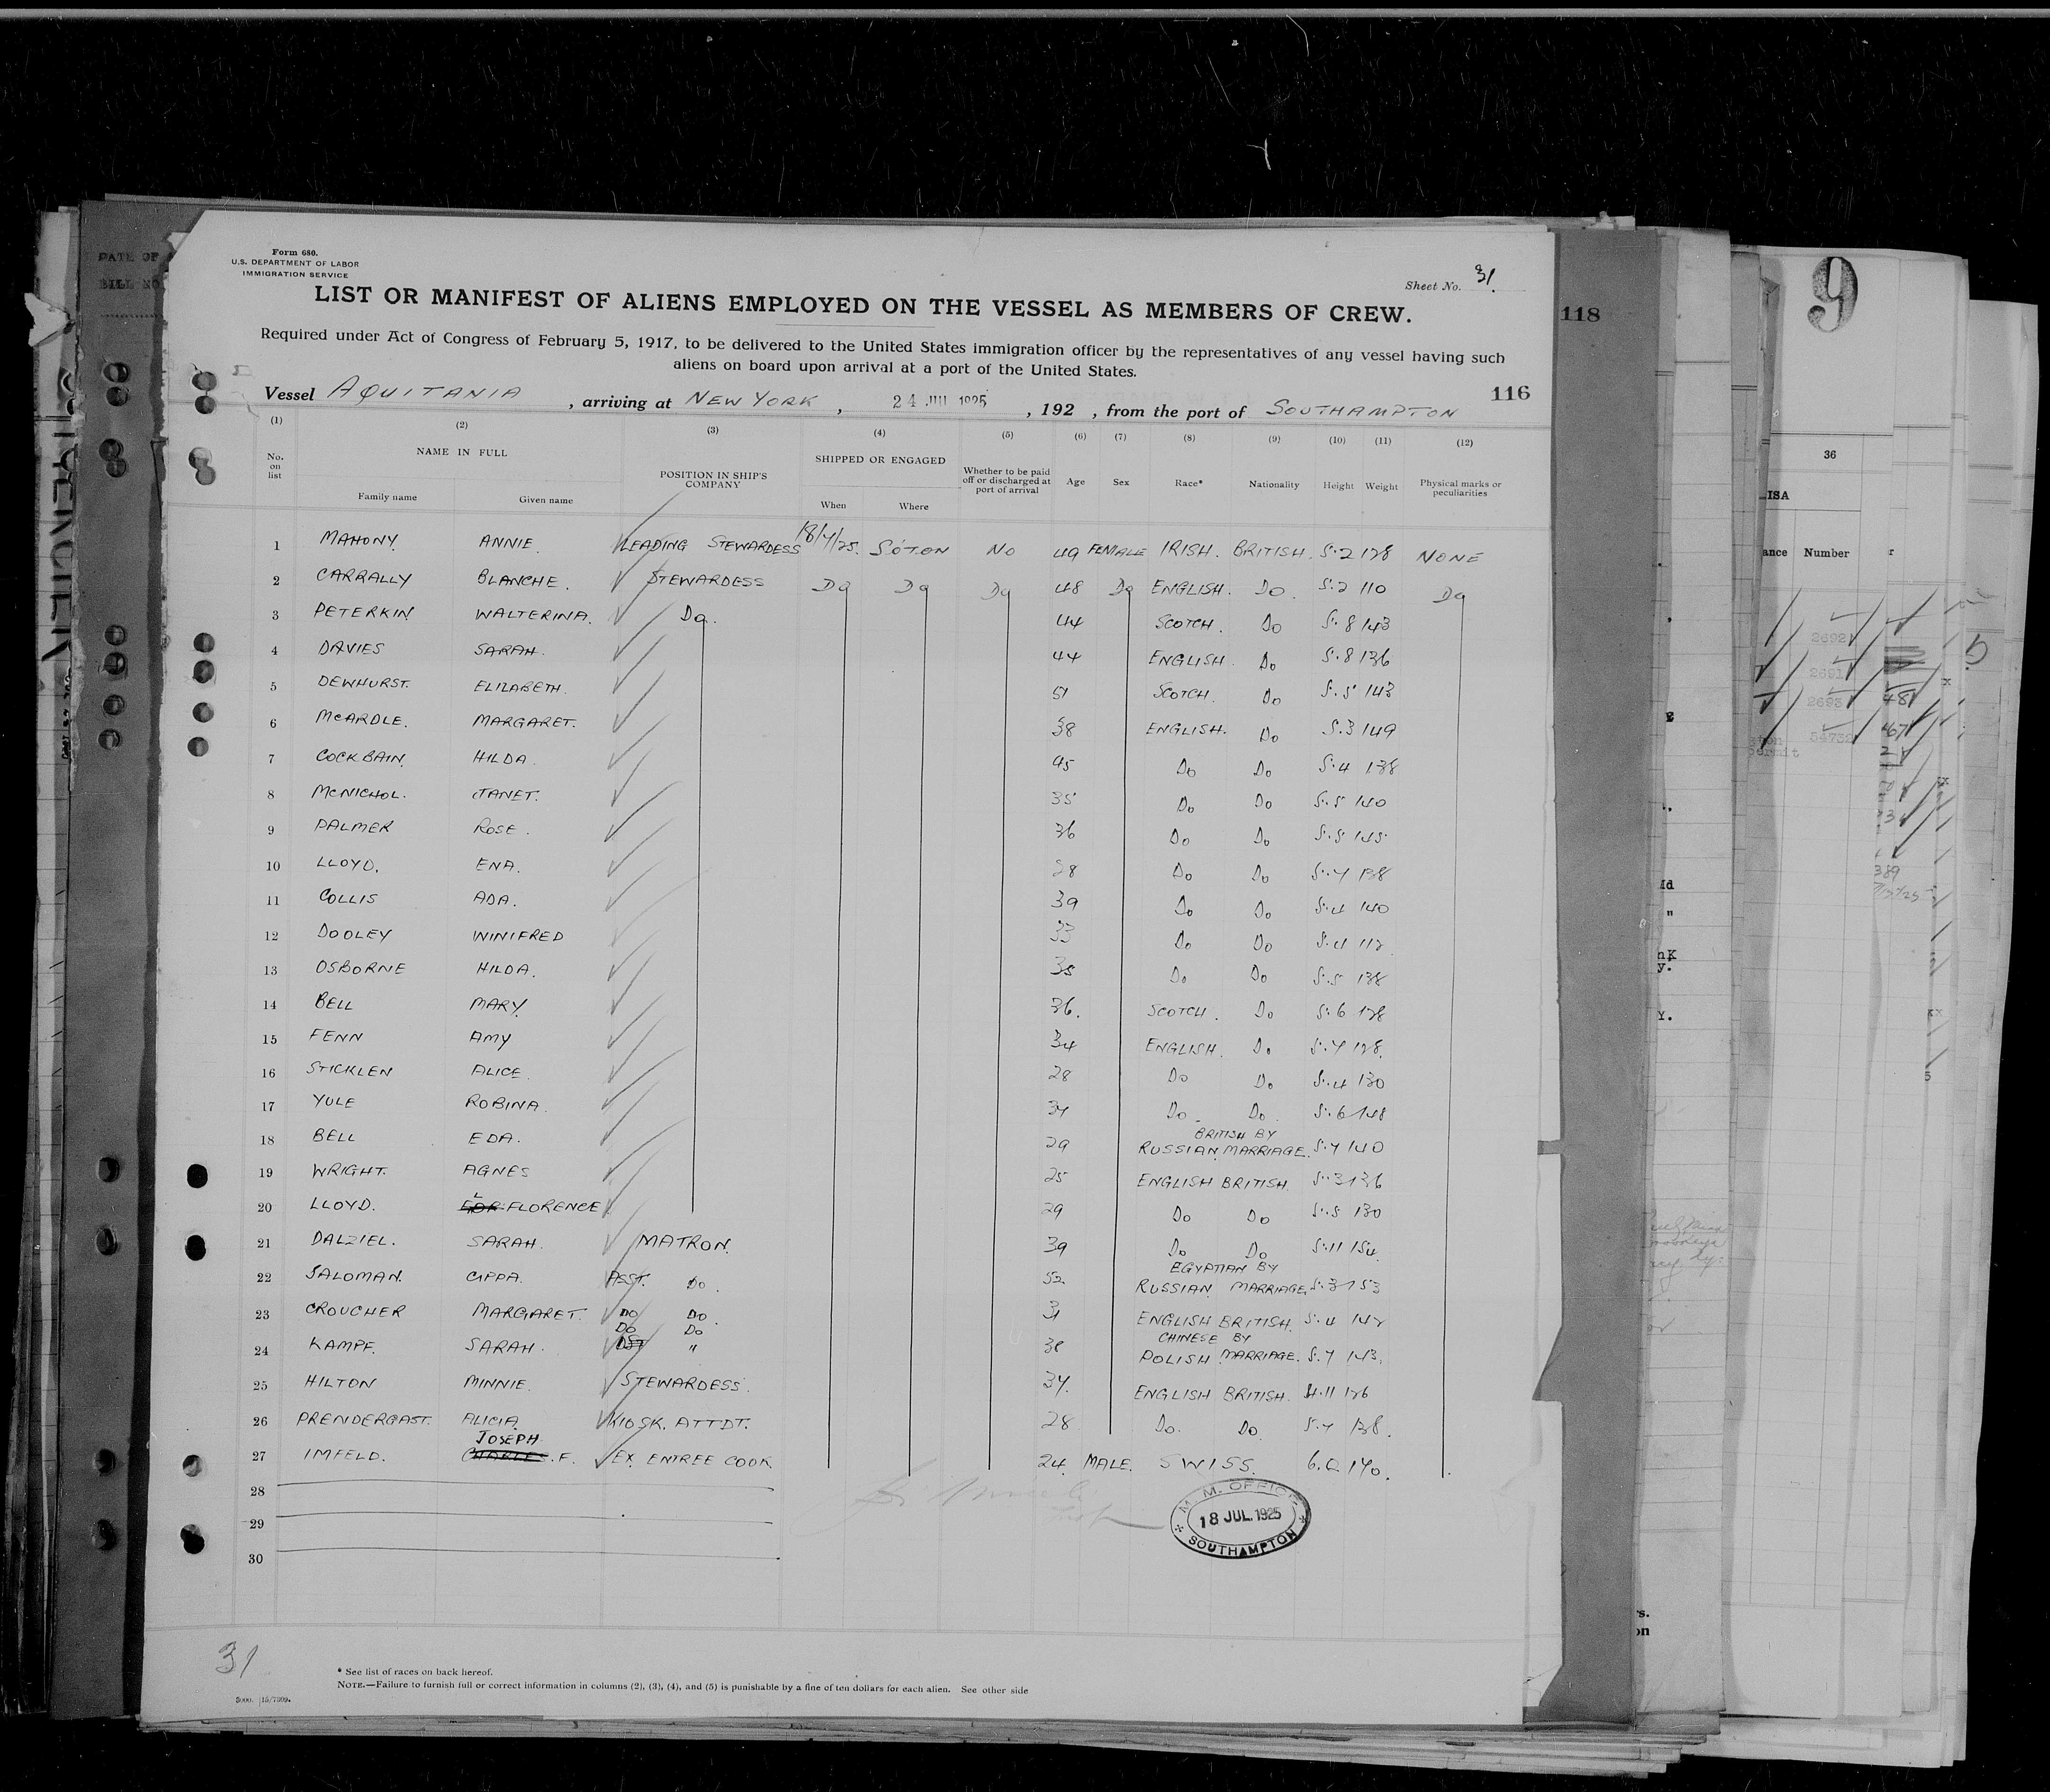 Form 680.
U.S. DEPARTMENT OF LABOR
IMMIGRATION SERVICE
Sheet No. 31.
LIST OR MANIFEST OF ALIENS EMPLOYED ON THE VESSEL AS MEMBERS OF CREW.
Required under Act of Congress of February 5, 1917, to be delivered to the United States immigration officer by the representatives of any vessel having such
aliens on board upon arrival at a port of the United States.
116
Vessel AQUITANIA, arriving at NEW YORK, 24 JUL 1925, 192 , from the port of SOUTHAMPTON
(1) (2) (3) (4) (5) (6) (7) (8) (9) (10) (11) (12)
No. on list NAME IN FULL Family name Given name POSITION IN SHIP'S COMPANY SHIPPED OR ENGAGED When Where Whether to be paid off or discharged at port of arrival Age Sex Race* Nationality Height Weight Physical marks or peculiarities
1 MAHONY. ANNIE. LEADING STEWARDESS 18/7/25. S'OTON NO 49 FEMALE IRISH. BRITISH. 5.2 128 NONE
2 CARRALLY BLANCHE. STEWARDESS Do Do Do 48 Do ENGLISH. Do. 5.2 110 Do
3 PETERKIN WALTERINA. Do. 44 SCOTCH. Do 5.8 143
4 DAVIES SARAH. 44 ENGLISH. Do 5.8 136
5 DEWHURST. ELIZABETH. 51 SCOTCH. Do 5.5 143
6 McARDLE. MARGARET. 38 ENGLISH. Do 5.3 149
7 COCKBAIN. HILDA. 45 Do Do 5.4 138
8 McNICHOL. JANET. 35 Do Do 5.5 140
9 PALMER ROSE. 36 Do Do 5.5 145
10 LLOYD. ENA. 28 Do Do 5.7 138
11 COLLIS ADA. 39 Do Do 5.4 140
12 DOOLEY WINIFRED 33 Do Do 5.4 112
13 OSBORNE HILDA. 35 Do Do 5.5 138
14 BELL MARY. 36. SCOTCH. Do 5.6 128
15 FENN AMY 34 ENGLISH. Do 5.7 128.
16 STICKLEN ALICE. 28 Do Do 5.4 130
17 YULE ROBINA. 37 Do. Do. 5.6 148
18 BELL EDA. 29 RUSSIAN BRITISH BY MARRIAGE. 5.7 140
19 WRIGHT. AGNES 25 ENGLISH BRITISH. 5.3 136
20 LLOYD. FLORENCE 29 Do Do 5.5 130
21 DALZIEL. SARAH. MATRON. 39 Do Do 5.11 154
22 SALOMAN. CIPPA. ASST. Do. 52 RUSSIAN EGYPTIAN BY MARRIAGE. 5.3 153
23 CROUCHER MARGARET. Do Do. 31 ENGLISH BRITISH. 5.4 142
24 KAMPF. SARAH. Do Do " 38 POLISH CHINESE BY MARRIAGE. 5.7 143.
25 HILTON MINNIE. STEWARDESS. 37. ENGLISH BRITISH. 4.11 126
26 PRENDERGAST. ALICIA. KIOSK. ATTDT. 28 Do. Do. 5.7 138.
27 IMFELD. JOSEPH. F. EX. ENTREE COOK 24. MALE. SWISS. 6.0 170.
28
29
30
M. M. OFFICE
18 JUL. 1925
SOUTHAMPTON
31
* See list of races on back hereof.
NOTE.—Failure to furnish full or correct information in columns (2), (3), (4), and (5) is punishable by a fine of ten dollars for each alien. See other side
3000. 15/7309.
DATE OF
BILL NO
118
9
36
ISA
ance Number
2692
2691
2693
54732
48
67
389